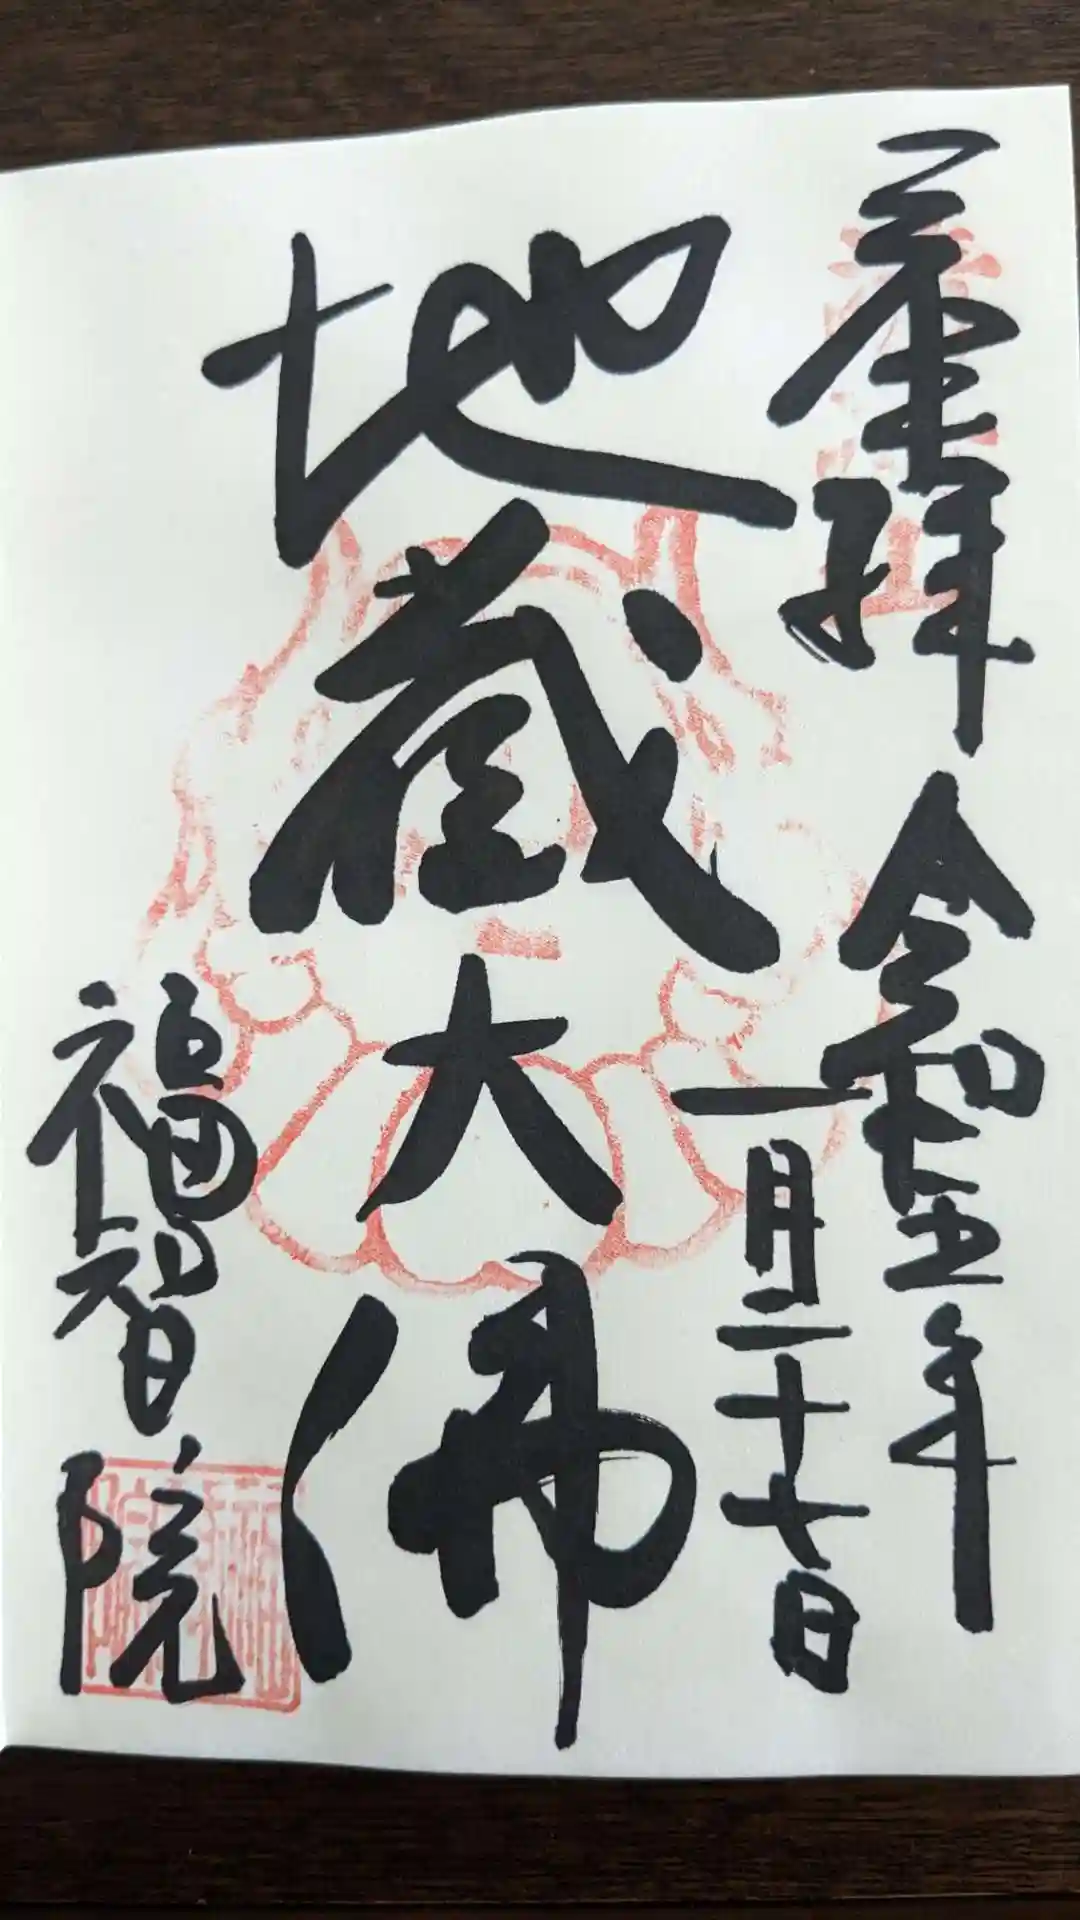 奉拝 令和五年
一月二十七日
地蔵大佛
福智院